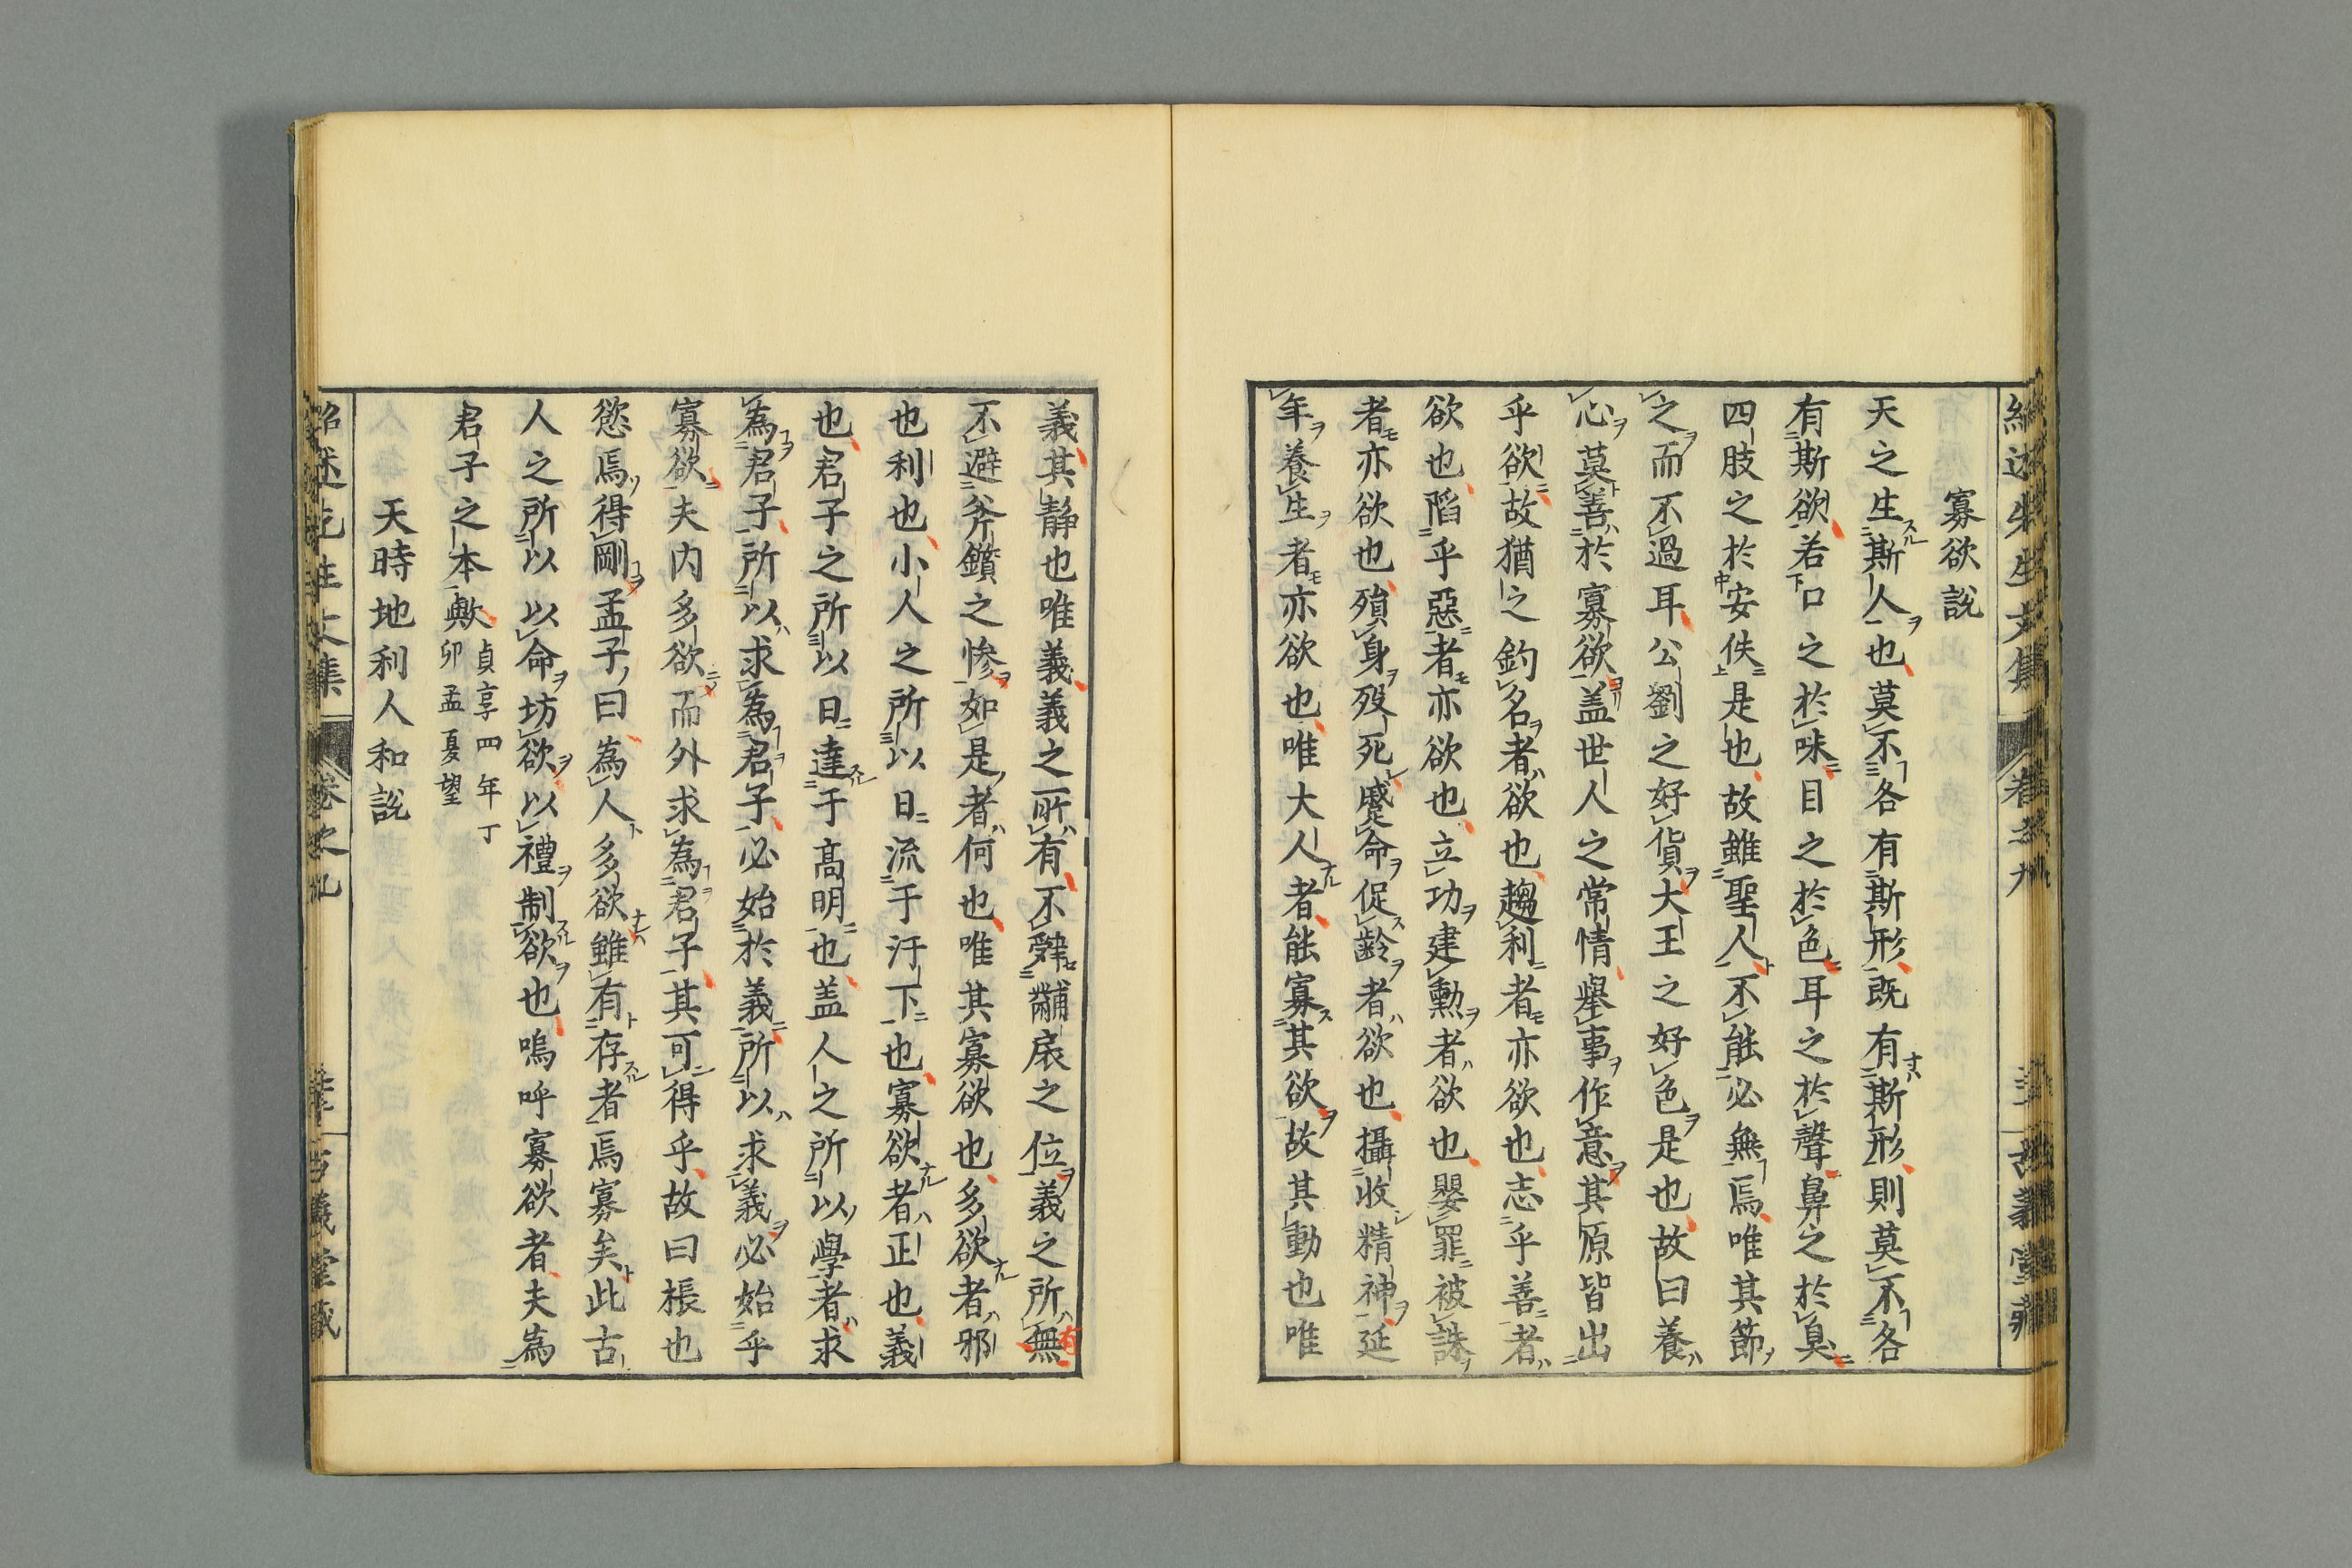 寡欲説
天之生斯人也莫不各有斯形既有斯形則莫不各
有斯欲若口之於味目之於色耳之於聲鼻之於臭
四肢之於安佚是也故雖聖人不能必無焉唯其節
之而不過耳公劉之好貨大王之好色是也故曰養
心莫善於寡欲盖世人之常情擧事作意其原皆出
乎欲故猶之釣名者欲也趨利者亦欲也志乎善者
欲也陷乎惡者亦欲也立功建勳者欲也嬰罪被誅
者亦欲也殞身歿死蹙命促齡者欲也攝收精神延
年養生者亦欲也唯大人者能寡其欲故其動也唯
義其静也唯義義之所有不辤黼扆之位義之所無
不避斧鑕之惨如是者何也唯其寡欲也多欲者邪
也利也小人之所以日流于汙下也寡欲者正也義
也君子之所以日達于高明也盖人之所以學者求
為君子所以求為君子必始於義所以求義必始乎
寡欲夫内多欲而外求為君子其可得乎故曰棖也
慾焉得剛孟子曰為人多欲雖有存者焉寡矣此古
人之所以以命坊欲以禮制欲也嗚呼寡欲者夫為
君子之本歟 貞享四年丁
卯孟夏望
天時地利人和説
紹述先生文集 卷之九 古義堂藏